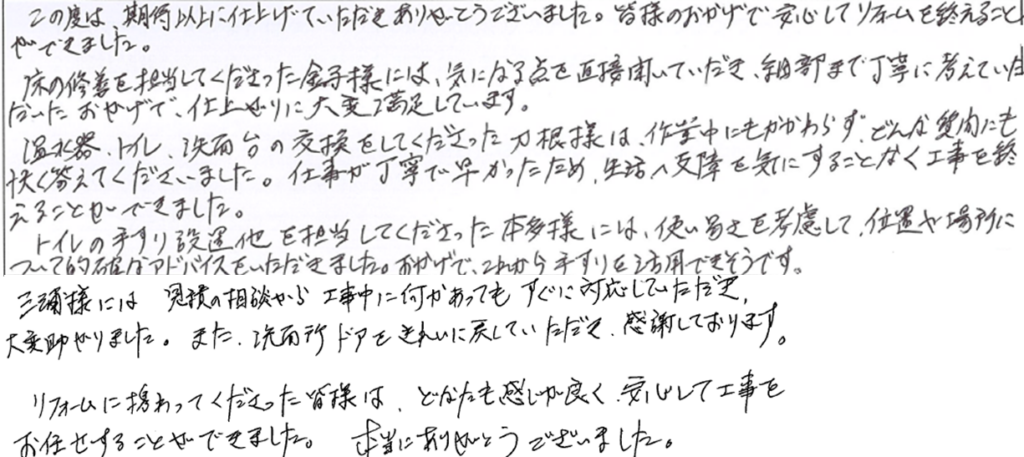 この度は、期待以上に仕上げていただきありがとうございました。皆様のおかげで安心してリフォームを終えること
ができました。
床の修善を担当してくださった金子様には、気になる点を直接聞いていだき、細部まで丁寧に考えていた
だいたおかげで、仕上がりに大変満足しています。
温水器、トイレ、洗面台の交換をしてくださった刀根様は、作業中にもかかわらず、どんな質問にも
快く答えてくださいました。仕事が丁寧で早かったため、生活へ支障を気にすることなく工事を終
えることができました。
トイレの手すり設置他を担当してくださった本多様には、使い易さを考慮して、位置や場所に
ついて的確なアドバイスをいただきました。おかげで、これから手すりを活用できそうです。
三浦様には 見積の相談から 工事中に何かあっても すぐに対応していただき、
大変助かりました。また、洗面所ドアをきれいに戻していただき、感謝しております。
リフォームに携わってくださった皆様は、どなたも感じが良く、安心して工事を
お任せすることができました。 本当にありがとうございました。